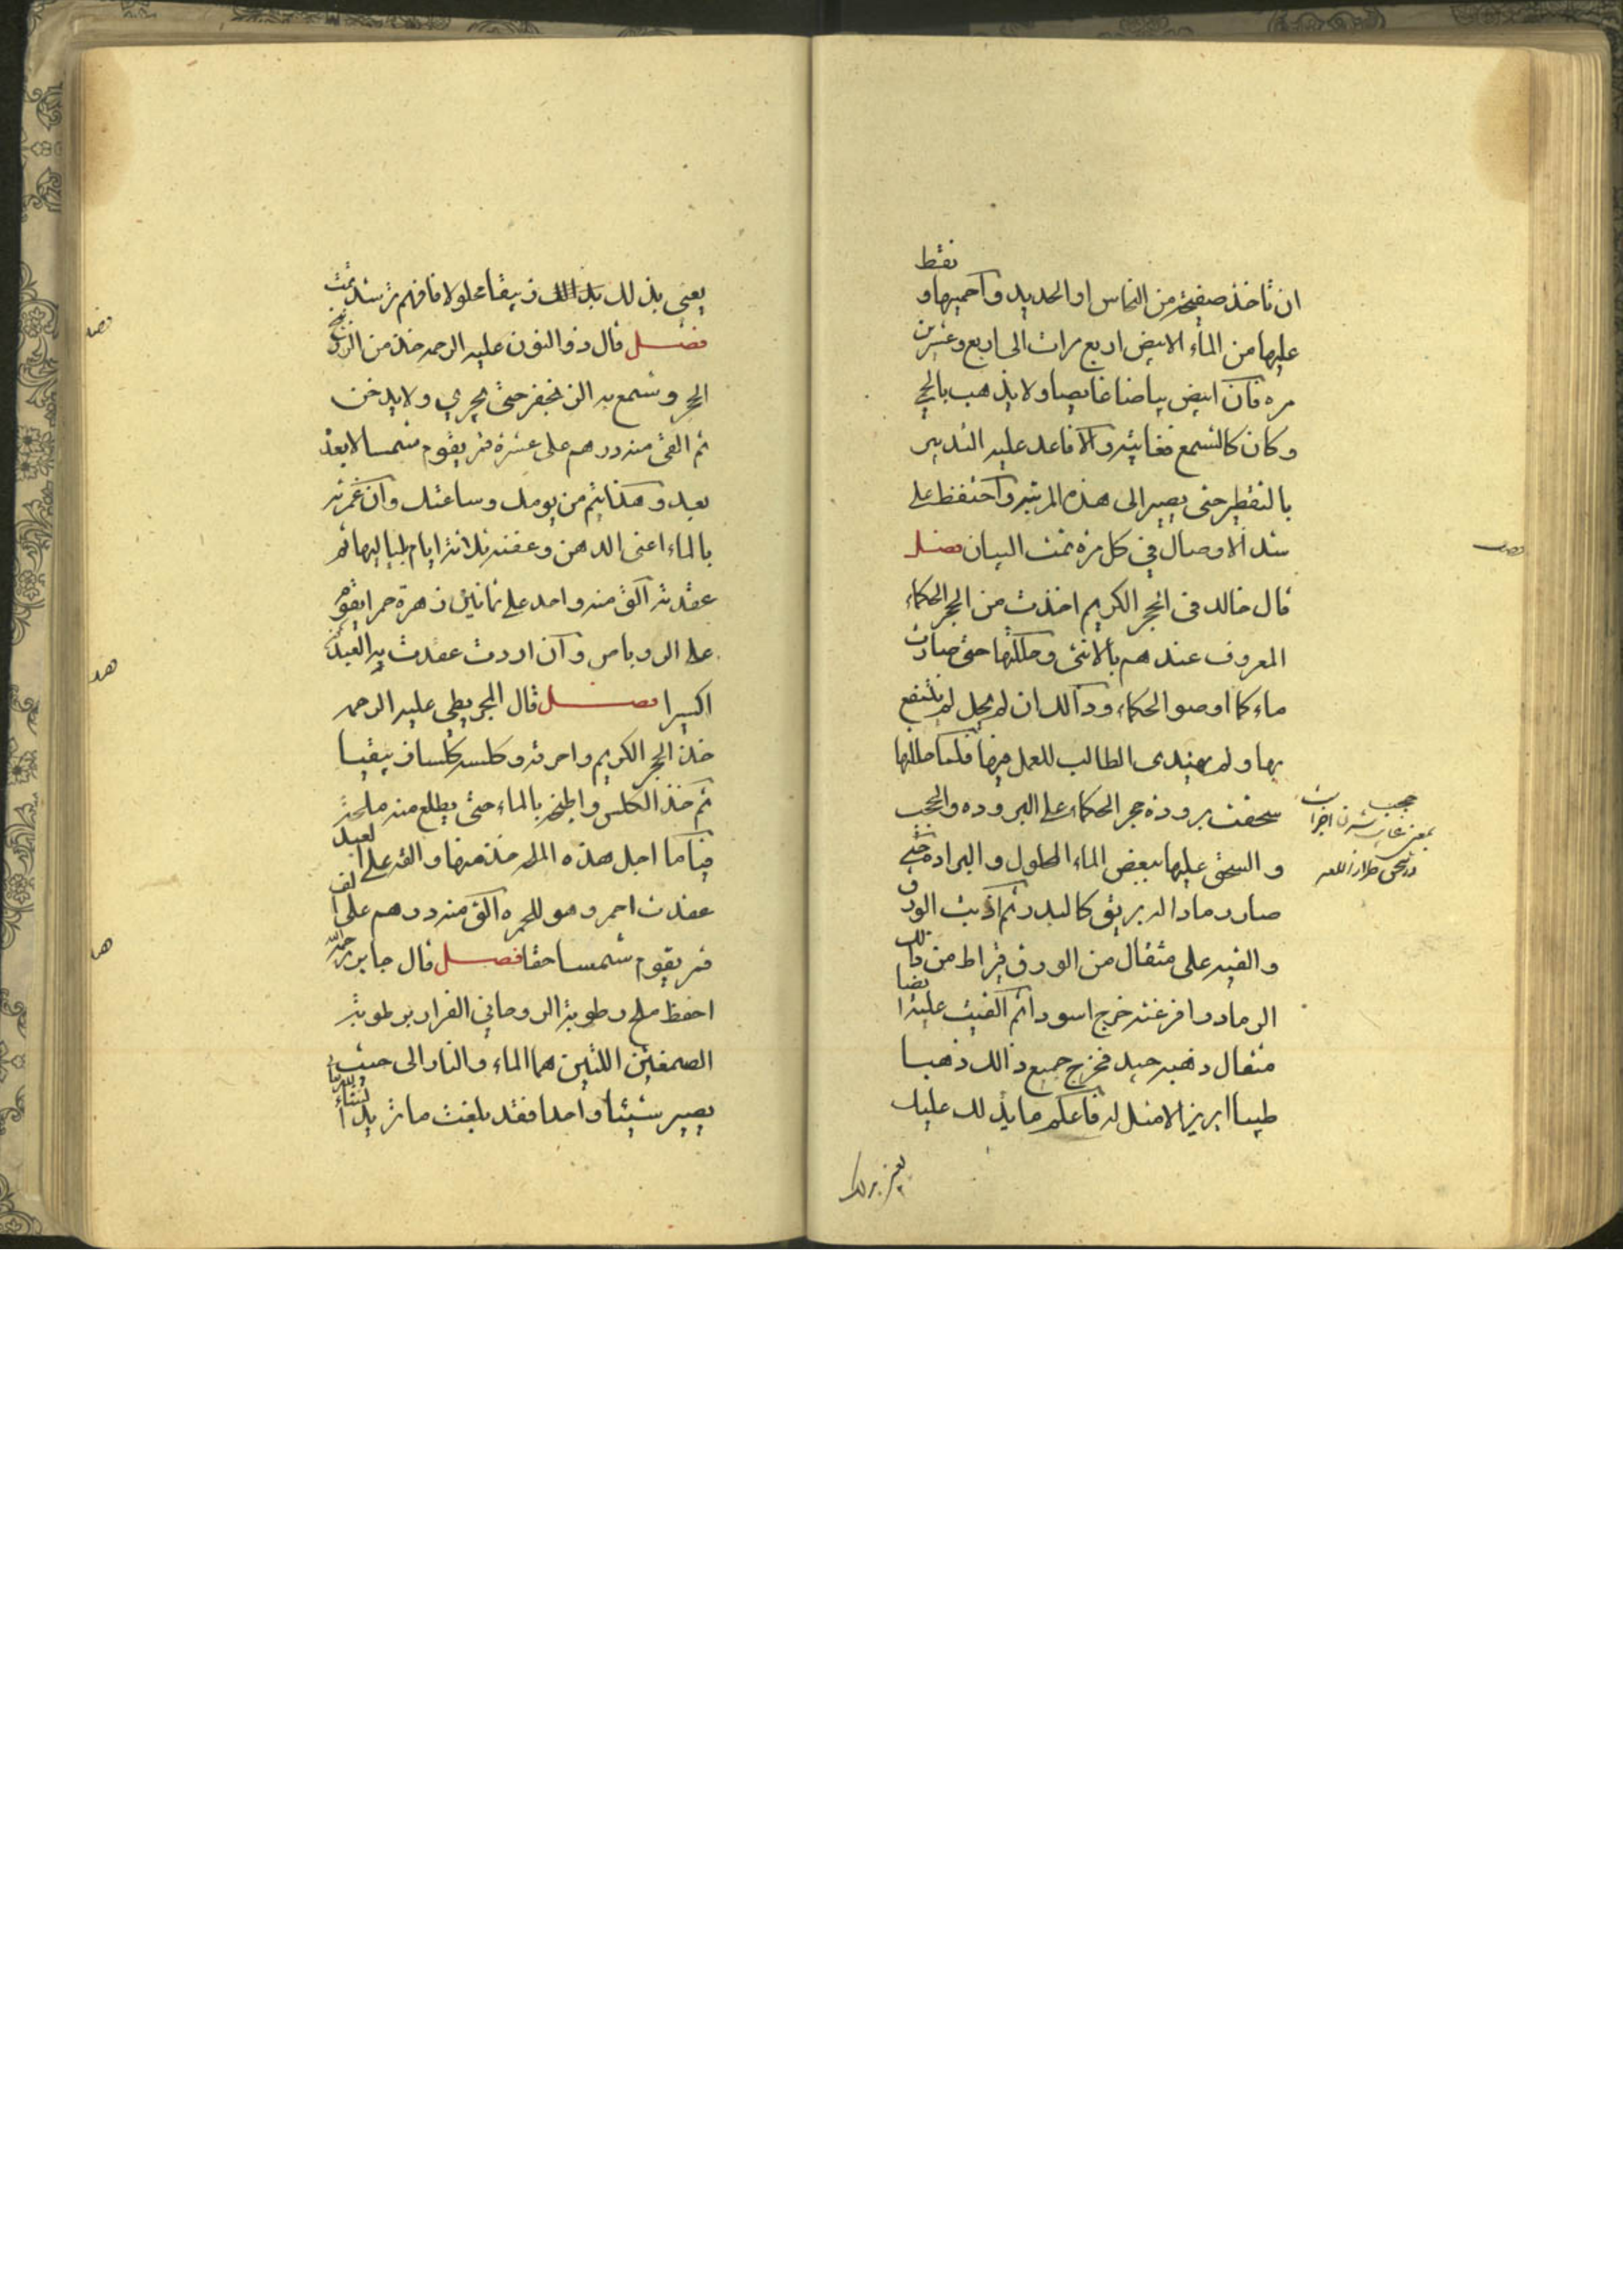 ان تاخذ صفيحة من النحاس او الحديد واحميها و نقط
عليها من الماء الابيض اربع مرات الى اربع وعشرين
مره فان ابيض بياضا غايصا ولا يذهب بالحمي
وكان كالشمع فغايته والا فاعد عليه التدبير
بالتقطير حتى يصير الى هذه المرتبه واحتفظ على
شد الاوصال في كل مرة تمت البيان فصل
قال خالد في الحجر الكريم اخذت من الحجر الحكماء
المعروف عندهم بالانثى وحللتها حتى صارت
ماء كما اوصو الحكماء وذالك ان لم يحل لم ينتفع
بها ولم يهتدى الطالب للعمل فيها فلما حللتها
سحقت برودة حجر الحكماء على البروده والحجب
و السحق عليها ببعض الماء المحلول و البرادة حتى
صار رمادا له بريق كالبدر ثم اذبت الورق
والقيه على مثقال من الورق قيراط من ذالك
الرماد وافرغته خرج اسود اثم القيت عليه ايضا
مثقال ذهبه جيد فخرج جميع ذالك ذهبا
طيبا ابريزا لا مثل له فاعلم ما يذلك عليك
يعني بذلك
يعني بذلك بذالك زيبقا محلولا فافهم ترشد تمت
فصل قال ذو النون عليه الرحمه خذ من الزرنيخ
الحجر وشمع به الزنجفر حتى يجري ولا يدخن
ثم القى منه درهم على عشرة قمر يقوم شمسا لا بعد
بعيد وهكذا يتم من يومك وساعتك وان غمرته
بالماء اعنى الدهن وعفنه ثلاثة ايام بلياليها ثم
عقدته الق منه واحد على ثمانين زهرة حمرا يقوم
على الروباص وان اردت عقدت به العبد
اكسيرا فصل قال المجريطي عليه الرحمه
خذ الحجر الكريم واحرقه وكلسه كلسا زيبقيا
ثم خذ الكلس واطبخه بالماء حتى يطلع منه ملحة
فيا ما اجل هذه الملح خذ منها والقه على العبد
عقدت احمر وهو للحمره الق منه درهم على الف
قمر يقوم شمسا حقا فصل قال جابر رحمه الله
احفظ ملح رطوبة الروحاني الفرار برطوبة
الصمغتين اللتين هما الماء والنار الى حيث
يصير شيئا واحدا فقد بلغت ما تريد انشاء الله تعا